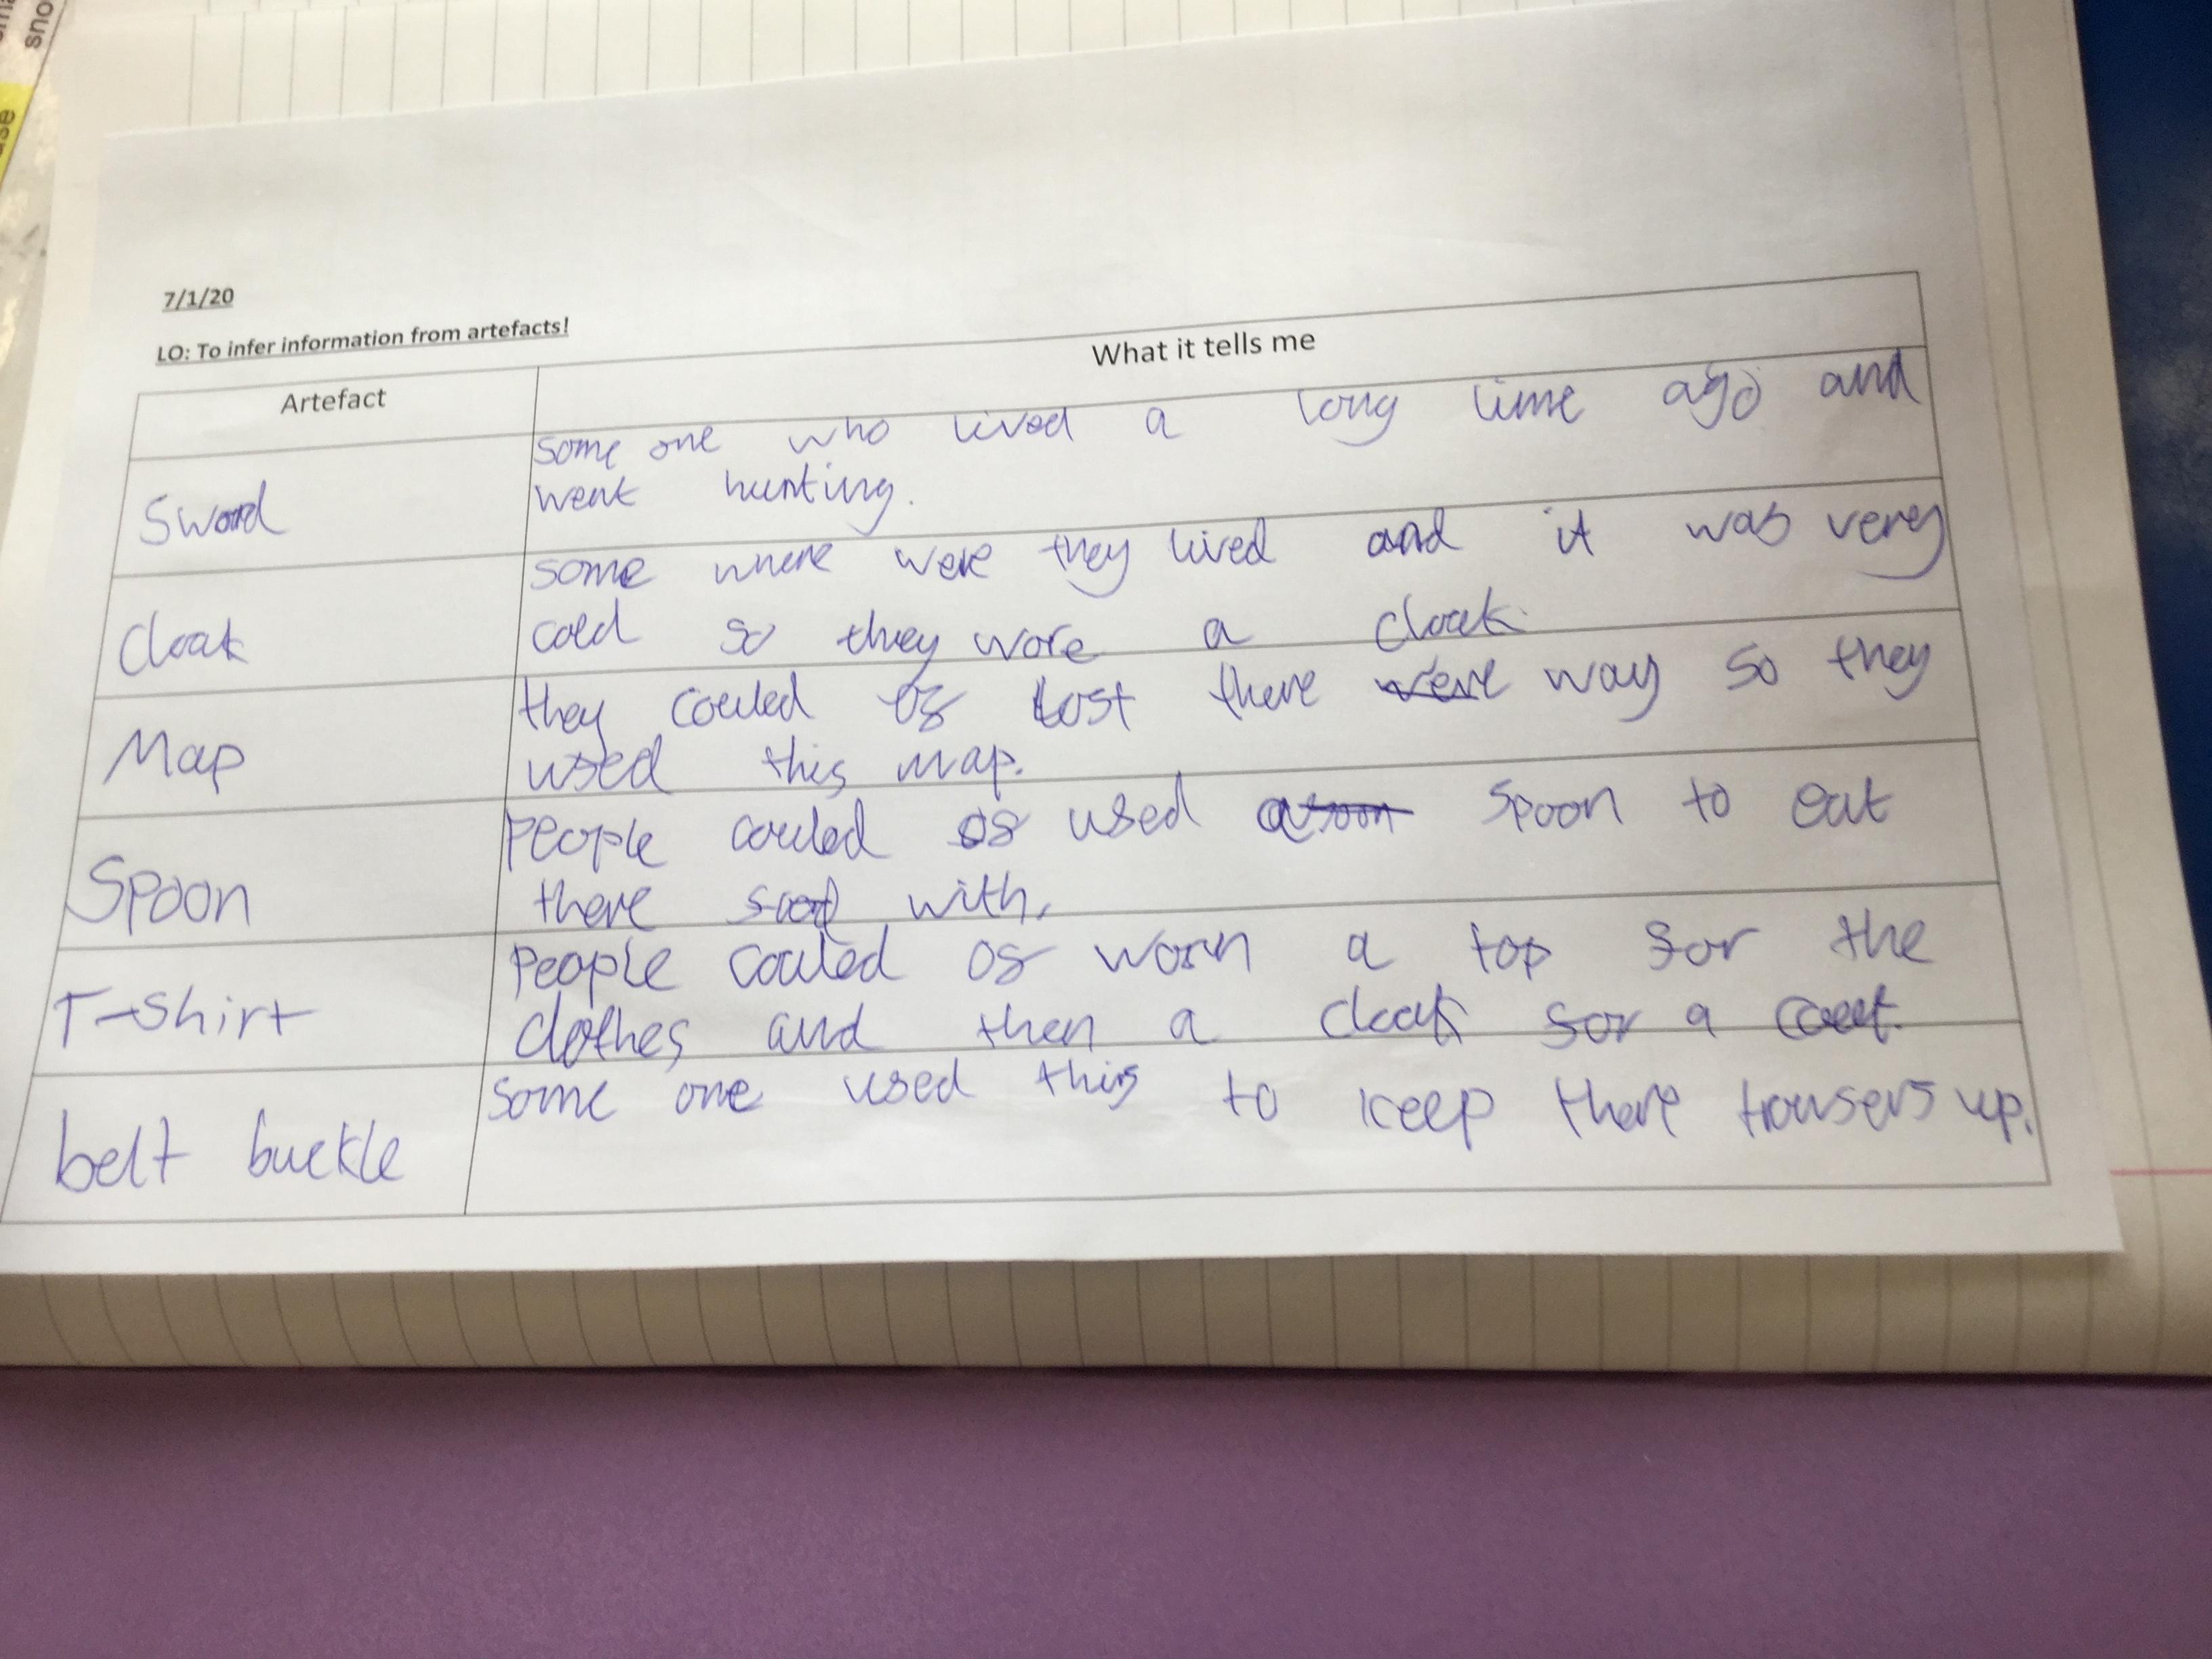 sno
7/1/20
LO: To infer information from artefacts!
Artefact
What it tells me
Sword
Some one who lived a long time ago and
went hunting.
Cloak
some where were they lived and it was very
cold so they wore a cloak.
Map
they couled of lost there were way so they
used this map.
Spoon
People couled of used spoon to eat
there food with.
T-shirt
People couled of worn a top for the
clothes and then a cloak for a coat.
belt buckle
Some one used this to keep there trousers up.